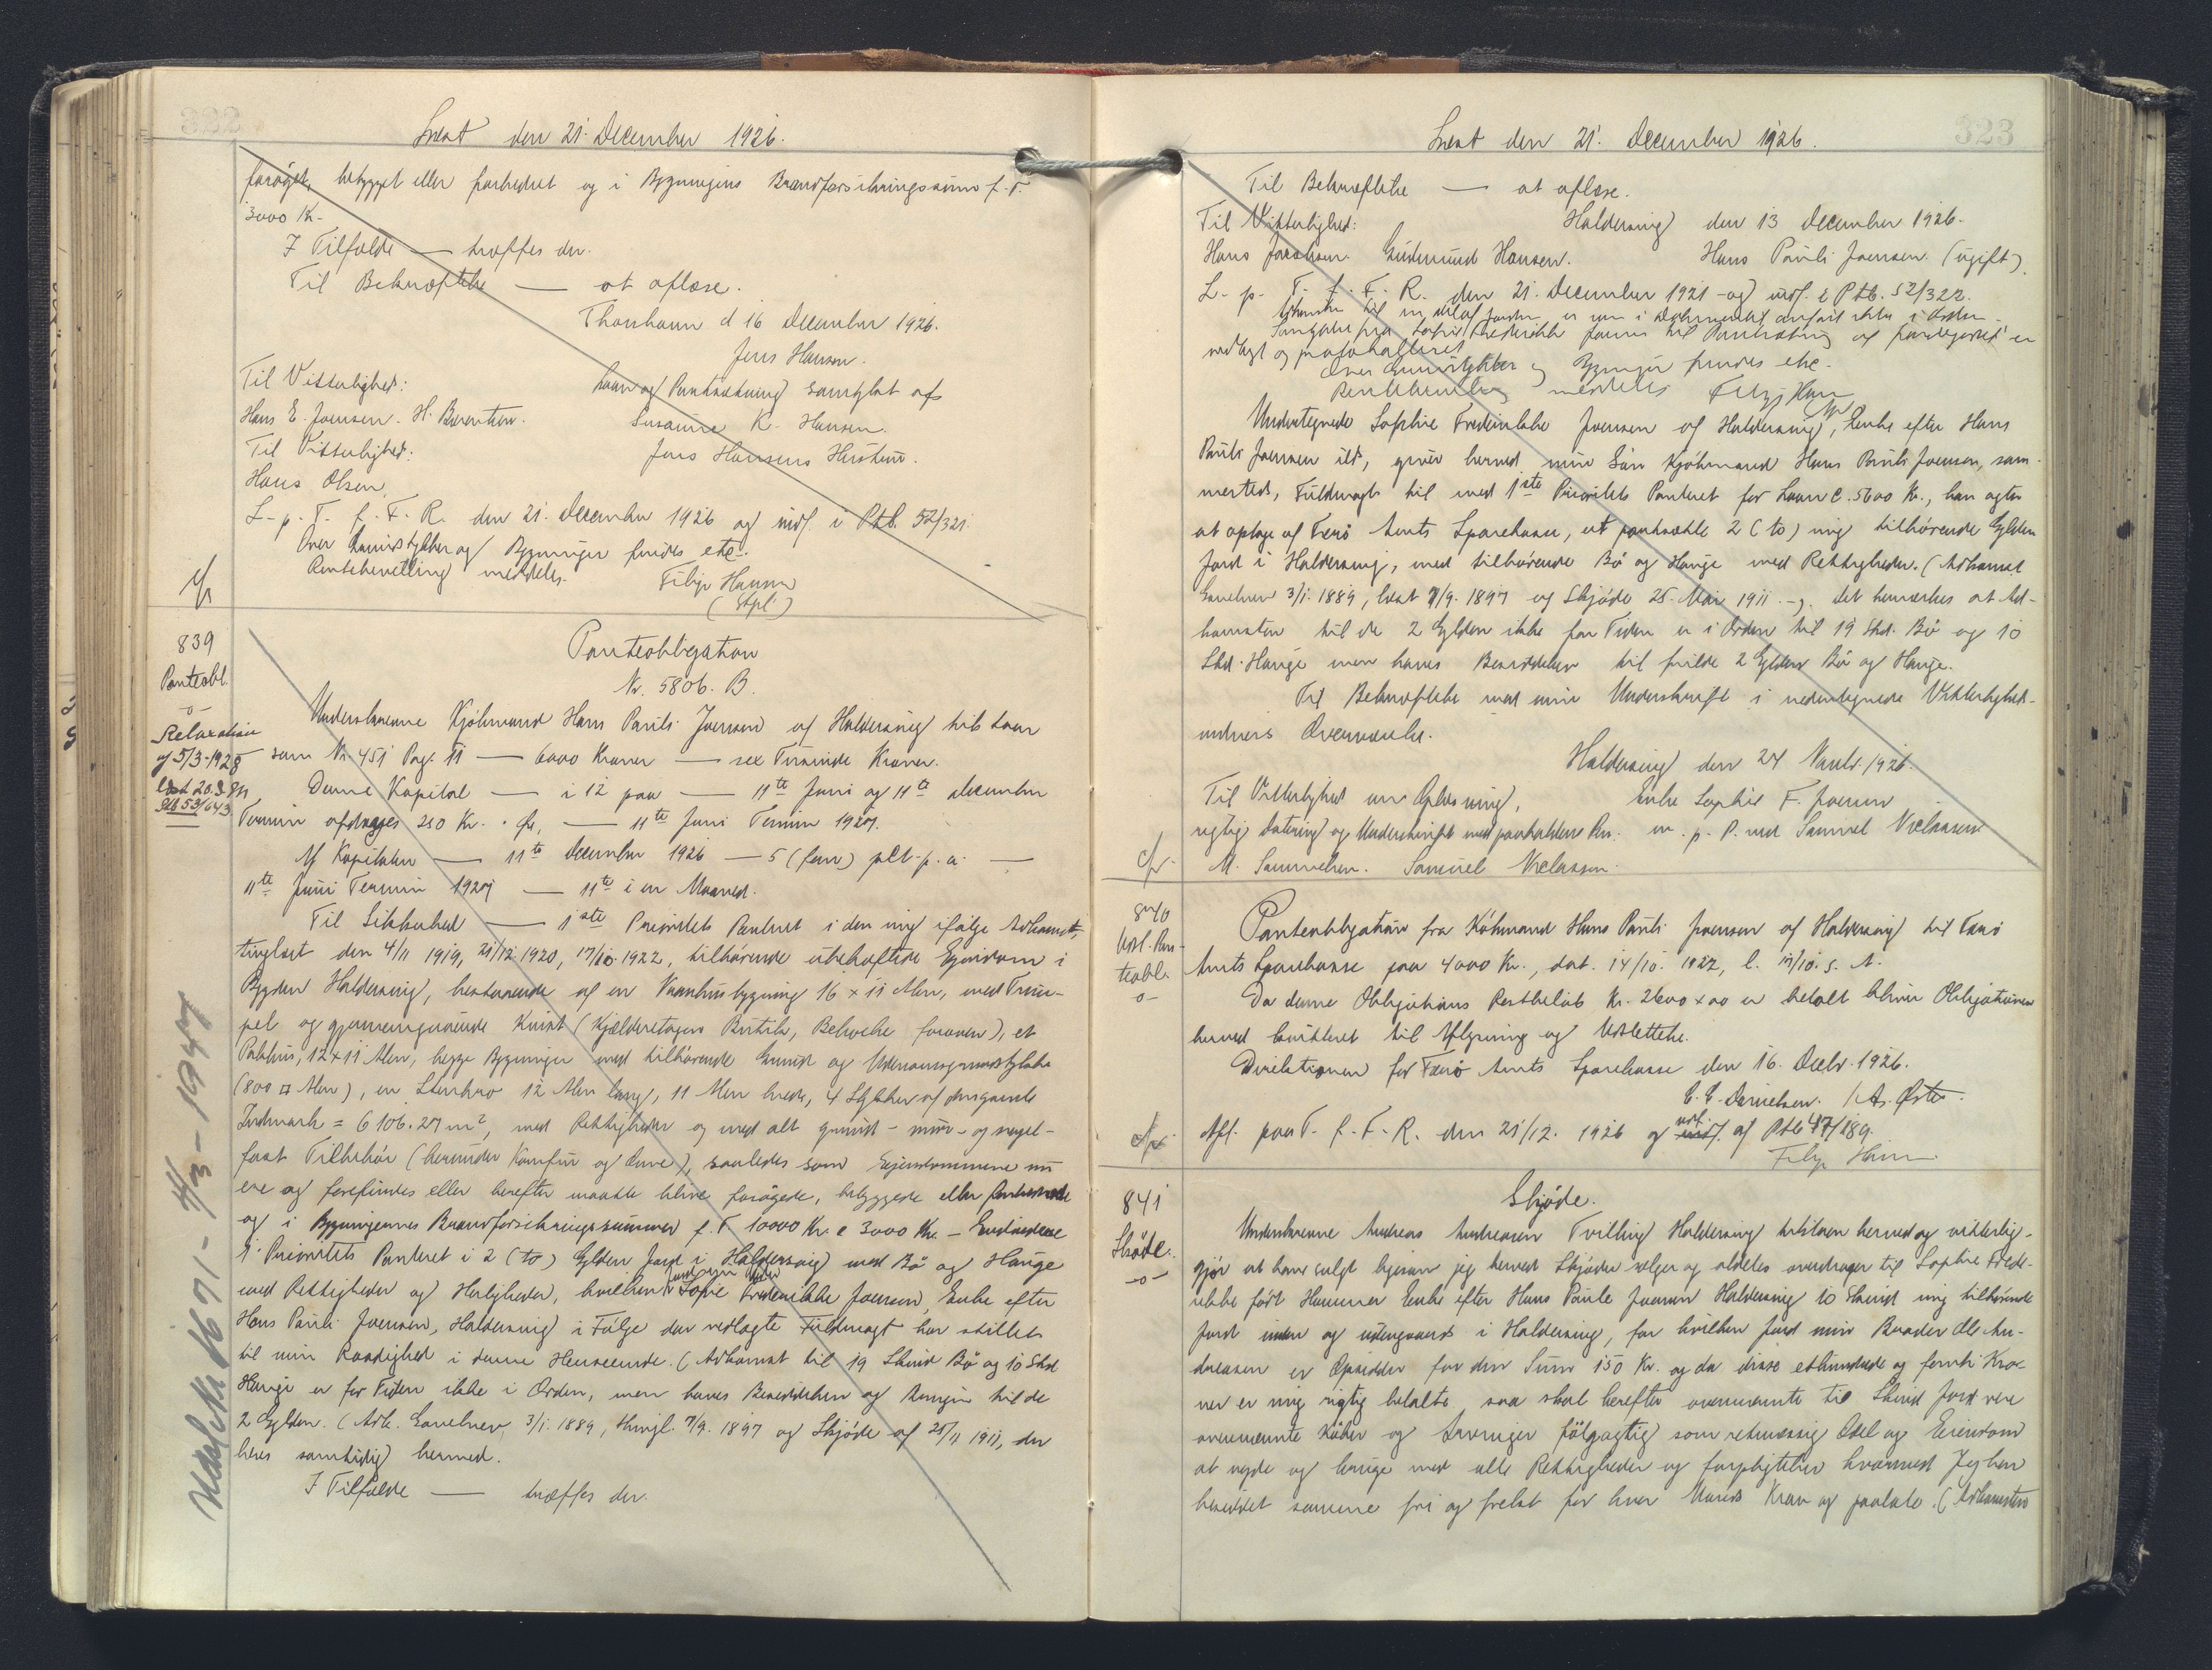 322
Læst den 21. December 1926.
forøget, bebygget eller forbedret og i Bygningens Brandforsikringssum f. T.
3000 Kr.
I Tilfælde — træffes der.
Til Bekræftelse — at aflæse.
Thorshavn d 16 December 1926.
Jens Hansen.
Til Vitterlighed:
Laan og Pantsætning samtykt af
Hans E. Joensen. H. Berentsen.
Susanne K. Hansen.
Til Vitterlighed:
Jens Hansens Hustru.
Hans Olsen.
L. p. T. f. F. R. den 21. December 1926 og indf. i Ptb. 52/321.
Over Grundstykker og Bygninger findes etc.
Rentebevilling meddeles. Filip Hansen
(Stpl.)
839
Panteobl.
-o-
Relaxation
af 5/3-1928
læst 20.3.
53/643
Panteobligation
Nr. 5806. B.
Underskrevne Kjøbmand Hans Pauli Joensen af Haldersvig
som Nr 451 Pag. 11 — 6000 Kroner — sex Tusinde Kroner.
Denne Kapital — i 12 paa — 11te Juni og 11te December
Termin afdrages 250 Kr. · Ør, — 11te Juni Termin 1927.
Af Kapitalen — 11te December 1926 — 5 (fem) pCt. p. a. —
11te Juni Termin 1927 — 11te i en Maaned.
Til Sikkerhed — 1ste Prioritets Panteret i den mig ifølge Adkomst,
tinglæst den 4/11 1919, 21/12 1920, 17/10 1922, tilhørende ubehæftede Ejendom i
Bygden Haldersvig, bestaaende af en Vaanhusbygning 16 x 11 Alen, med Trem-
pel og gjennemgaaende Kvist (Kjælderetagen Butik, Beboelse foroven), et
Pakhus, 12 x 11 Alen, begge Bygninger med tilhørende Grund og Udenomsgrundstykke
(800 □ Alen), en Stenkro 12 Alen lang, 11 Alen bred, 4 Stykker af
Indmark = 6106.27 m², med Rettigheder og med alt grund- mur- og nagel-
fast Tilbehør (herunder Komfur og Ovne), saaledes som Ejendommene nu
ere og forefindes eller herefter maatte blive forøgede, bebyggede eller forbedrede
og i Bygningernes Brandforsikringssummer f. T. 10000 Kr. & 3000 Kr. — Endvidere
1. Prioritets Panteret i 2 (to) Gylden Jord i Haldersvig med Bø og Hauge
med Rettigheder og Herligheder, hvilken Sofie Frederikke Joensen, Enke efter
Hans Pauli Joensen, Haldersvig i Følge den vedlagte Fuldmagt har stillet
til min Raadighed i denne Henseende. (Adkomst til 19 Skind Bø og 10 Skd
Hauge er for Tiden ikke i Orden, men haves Besiddelsen og til de
2 Gylden. (Adk. Gavebrev 3/1. 1889, thingl. 7/9. 1897 og Skjøde af 25/11 1911, der
læses samtidig hermed.
I Tilfælde — træffes der.
Udslettet 1671 - 4/3 - 1947
323
Læst den 21. December 1926.
Til Bekræftelse — at aflæse.
Til Vitterlighed: Haldersvig den 13 December 1926.
Hans Jacobsen. Gudmund Hansen. Hans Pauli Joensen. (ugift).
L. p. T. f. F. R. den 21. December 1921 og indf. i Ptb. 52/322.
vedlagt og protokolleret
Over Grundstykker og Bygninger findes etc.
Rentebevilling meddeles Filip Hansen
Undertegnede Sophie Frederikke Joensen af Haldersvig, Enke efter Hans
Pauli Joensen, giver herved min Søn Kjøbmand Hans Pauli Joensen, sam-
mesteds, Fuldmagt til med 1ste Prioritets Panteret for Laan c. 5600 Kr., han agter
at optage af Færø Amts Sparekasse, at pantsætte 2 (to) mig tilhørende Gylden
Jord i Haldersvig, med tilhørende Bø og Hauge med Rettigheder. (Adkomst
Gavebrev 3/1. 1889, læst 7/9. 1897 og Skjøde 25. Mai 1911 -). Det bemærkes at Ad-
komsten til de 2 Gylden ikke for Tiden er i Orden til 19 Skd. Bø og 10
Skd. Hauge men haves Besiddelsen til fulde 2 Gylden Bø og Hauge.
Til Bekræftelse med min Underskrift i nedentegnede Vitterligheds-
vidners Overværelse.
Haldersvig den 24 Novbr. 1926.
Til Vitterlighed om Oplæsning, Enke Sophie F. Joensen
rigtig Datering og Underskrift med paaholden Pen. m. p. P. ved Samuel Niclassen
M. Samuelsen. Samuel Niclassen.
840
Udsl. Pan-
teobl.
-o-
Panteobligation fra Købmand Hans Pauli Joensen af Haldersvig til Færø
Amts Sparekasse paa 4000 Kr., dat. 14/10. 1922, l. 17/10. s. A.
Da denne Obligations Restbeløb Kr. 2600 x 00 er betalt bliver Obligationen
herved kvitteret til Aflysning og Udslettelse.
Direktionen for Færø Amts Sparekasse den 16. Decbr. 1926.
C. C. Danielsen. / A.
Afl. paa T. f. F. R. den 21/12. 1926 og udsl. af Ptb 47/189.
Filip Hansen
841
Skøde.
-o-
Skjøde.
Underskrevne Andreas Andreasen Tvilling Haldersvig tilstaar herved og vitterlig-
gjør at have solgt ligesom jeg herved Skjøder sælger og aldeles overdrager til Sophie Frede-
rikke født Hammer Enke efter Hans Paule Joensen Haldersvig 10 Skind mig tilhørende
Jord inden og udengaards i Haldersvig, for hvilken Jord min Broder Ole An-
dreasen er Opsidder for den Sum 150 Kr. og da disse ethundrede og femti Kro-
ner er mig rigtig betalte saa skal herefter ovennævnte tie Skind Jord være
ovennævnte Køber og Arvinger følgagtig som retmæssig Odel og Eiendom
at nyde og bruge med alle Rettigheder og forpligtelser hvormed Jeg har
besiddet samme fri og frelst for hver Mands Krav og paatale. (Adkomsten